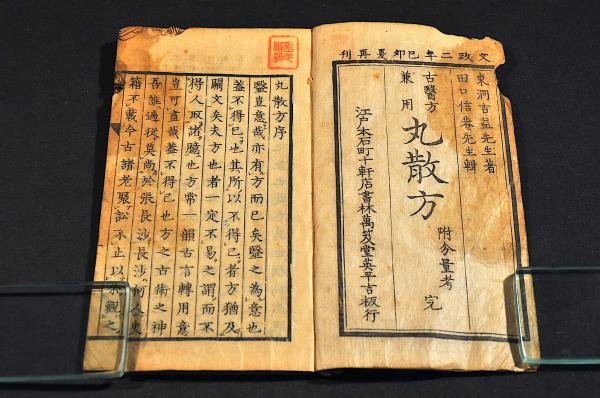 文政二年己卯夏再刊
東洞吉益先生著
田口信菴先生輯
古醫方
兼用
丸散方
附分量考 完
江戸本石町十軒店書林萬笈堂英平吉板行
丸散方序
醫豈意哉亦有方而已矣醫之為意也
蓋不得已也其所以不得已者方猶及
闕文矣夫方也者一定不易之謂而不
得人取諸臆也方常一韻古言轉用意
豈可盡哉蓋不得已也方之古術之神
吾誰適從莫尚於張長沙長沙何人史
籍不載今古諸老聚訟不止以余觀之